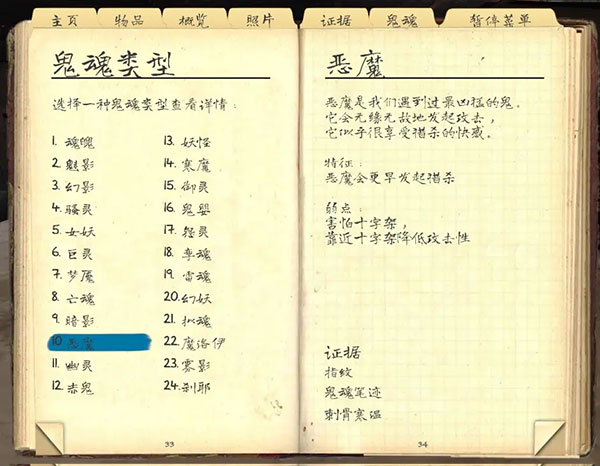 主页 物品 概览 照片 证据 鬼魂 暂停菜单
鬼魂类型
选择一种鬼魂类型查看详情：
1. 魂魄
2. 魅影
3. 幻影
4. 骚灵
5. 女妖
6. 巨灵
7. 梦魇
8. 亡魂
9. 暗影
10. 恶魔
11. 幽灵
12. 赤鬼
13. 妖怪
14. 寒魔
15. 御灵
16. 鬼婴
17. 怨灵
18. 孪魂
19. 雷魂
20. 幻妖
21. 拟魂
22. 魔洛伊
23. 雾影
24. 刹耶
33
恶魔
恶魔是我们遇到过最凶猛的鬼。
它会无缘无故地发起攻击，
它似乎很享受猎杀的快感。
特征：
恶魔会更早发起猎杀
弱点：
害怕十字架，
靠近十字架降低攻击性
证据
指纹
鬼魂笔迹
刺骨寒温
34